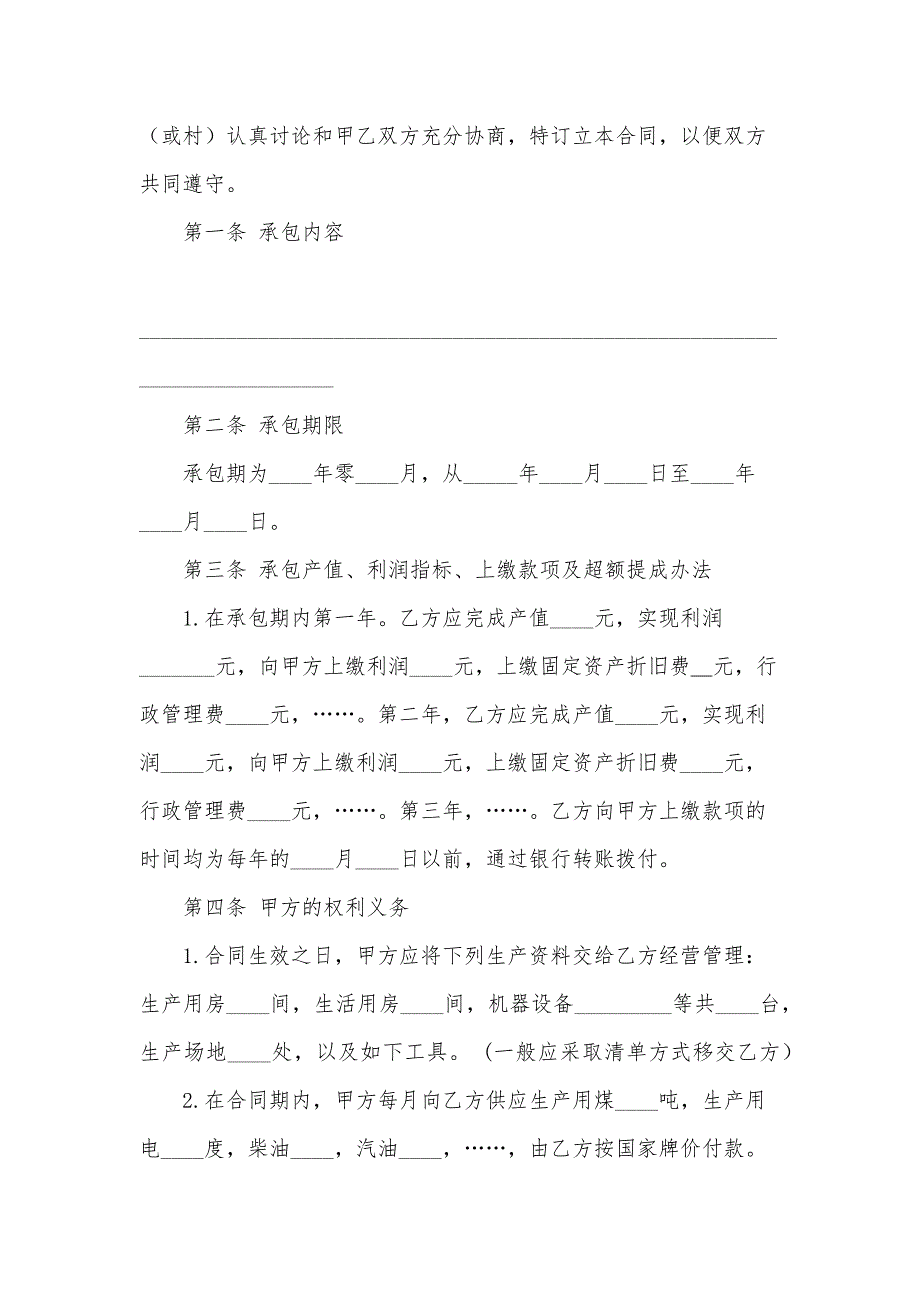 （或村）认真讨论和甲乙双方充分协商，特订立本合同，以便双方
共同遵守。
第一条 承包内容
___________________________________________________________
__________________
第二条 承包期限
承包期为____年零____月，从_____年____月____日至____年
____月____日。
第三条 承包产值、利润指标、上缴款项及超额提成办法
1.在承包期内第一年。乙方应完成产值____元，实现利润
_______元，向甲方上缴利润____元，上缴固定资产折旧费__元，行
政管理费____元，……。第二年，乙方应完成产值____元，实现利
润____元，向甲方上缴利润____元，上缴固定资产折旧费____元，
行政管理费____元，……。第三年，……。乙方向甲方上缴款项的
时间均为每年的____月____日以前，通过银行转账拨付。
第四条 甲方的权利义务
1.合同生效之日，甲方应将下列生产资料交给乙方经营管理：
生产用房____间，生活用房____间，机器设备_________等共____台，
生产场地____处，以及如下工具。（一般应采取清单方式移交乙方）
2.在合同期内，甲方每月向乙方供应生产用煤____吨，生产用
电____度，柴油____，汽油____，……，由乙方按国家牌价付款。